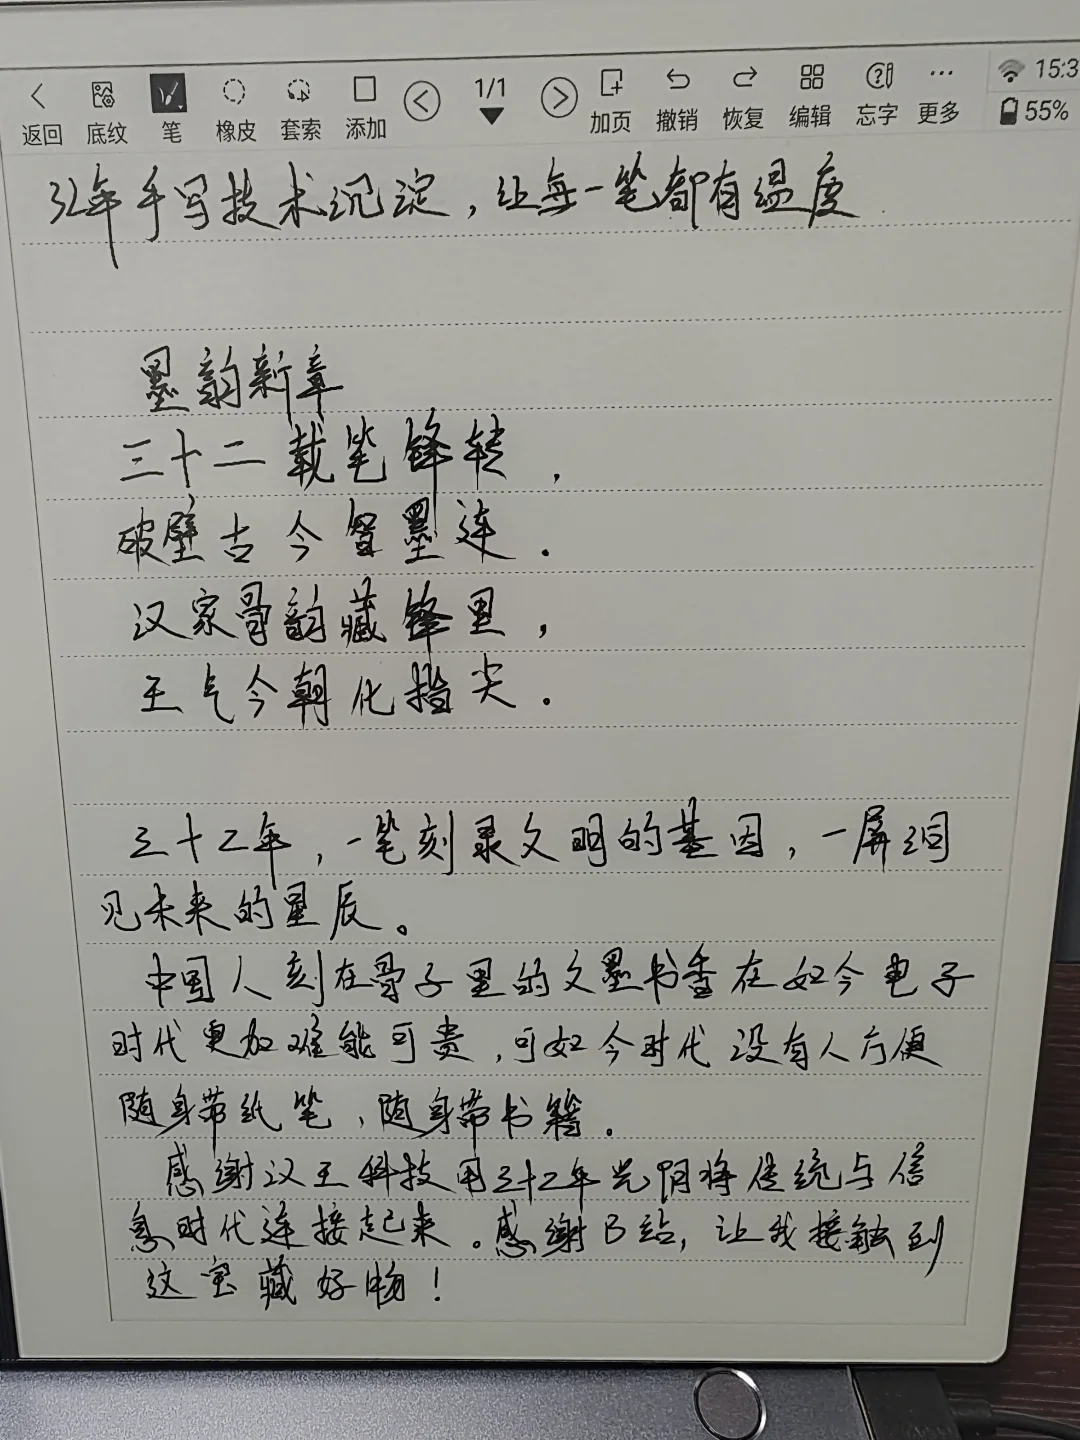 15:3
返回 底纹 笔 橡皮 套索 添加 1/1 加页 撤销 恢复 编辑 忘字 更多 55%
32年手写技术沉淀，让每一笔都有温度
墨韵新章
三十二载笔锋转，
破壁古今智墨连．
汉家骨韵藏锋里，
王气今朝化指尖．
三十二年，一笔刻录文明的基因，一屏洞
见未来的星辰。
中国人刻在骨子里的文墨书香在如今电子
时代更加难能可贵，可如今时代没有人方便
随身带纸笔，随身带书籍．
感谢汉王科技用三十二年光阴将传统与信
息时代连接起来．感谢B站，让我接触到
这宝藏好物！